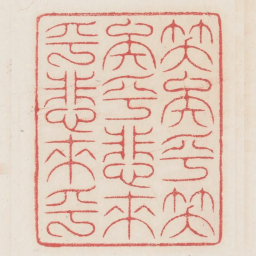 笑矣乎笑
矣乎悲來
乎悲來乎